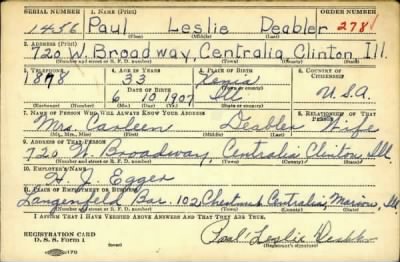 SERIAL NUMBER 1. NAME (Print) ORDER NUMBER
1456 Paul Leslie Deabler 2781
(First) (Middle) (Last)
2. ADDRESS (Print)
720 W. Broadway, Centralia Clinton Ill.
(Number and street or R. F. D. number) (Town) (County) (State)
3. TELEPHONE 4. AGE IN YEARS 5. PLACE OF BIRTH 6. COUNTRY OF CITIZENSHIP
1878 33 Xenia
DATE OF BIRTH (Town or county) U.S.A.
6 10 1907 Ill
(Exchange) (Number) (Mo.) (Day) (Yr.) (State or country)
7. NAME OF PERSON WHO WILL ALWAYS KNOW YOUR ADDRESS 8. RELATIONSHIP OF THAT PERSON
Mrs. Deabler Wife
(Mr., Mrs., Miss) (First) (Middle) (Last)
9. ADDRESS OF THAT PERSON
720 W. Broadway Centralia Clinton Ill
(Number and street or R. F. D. number) (Town) (County) (State)
10. EMPLOYER'S NAME
H. J. Egger
11. PLACE OF EMPLOYMENT OR BUSINESS
Langenfeld Bar. 102 Chestnut Centralia, Marion, Ill.
(Number and street or R. F. D. number) (Town) (County) (State)
I AFFIRM THAT I HAVE VERIFIED ABOVE ANSWERS AND THAT THEY ARE TRUE.
REGISTRATION CARD
D. S. S. Form 1 Paul Leslie Deabler
(Registrant's signature)